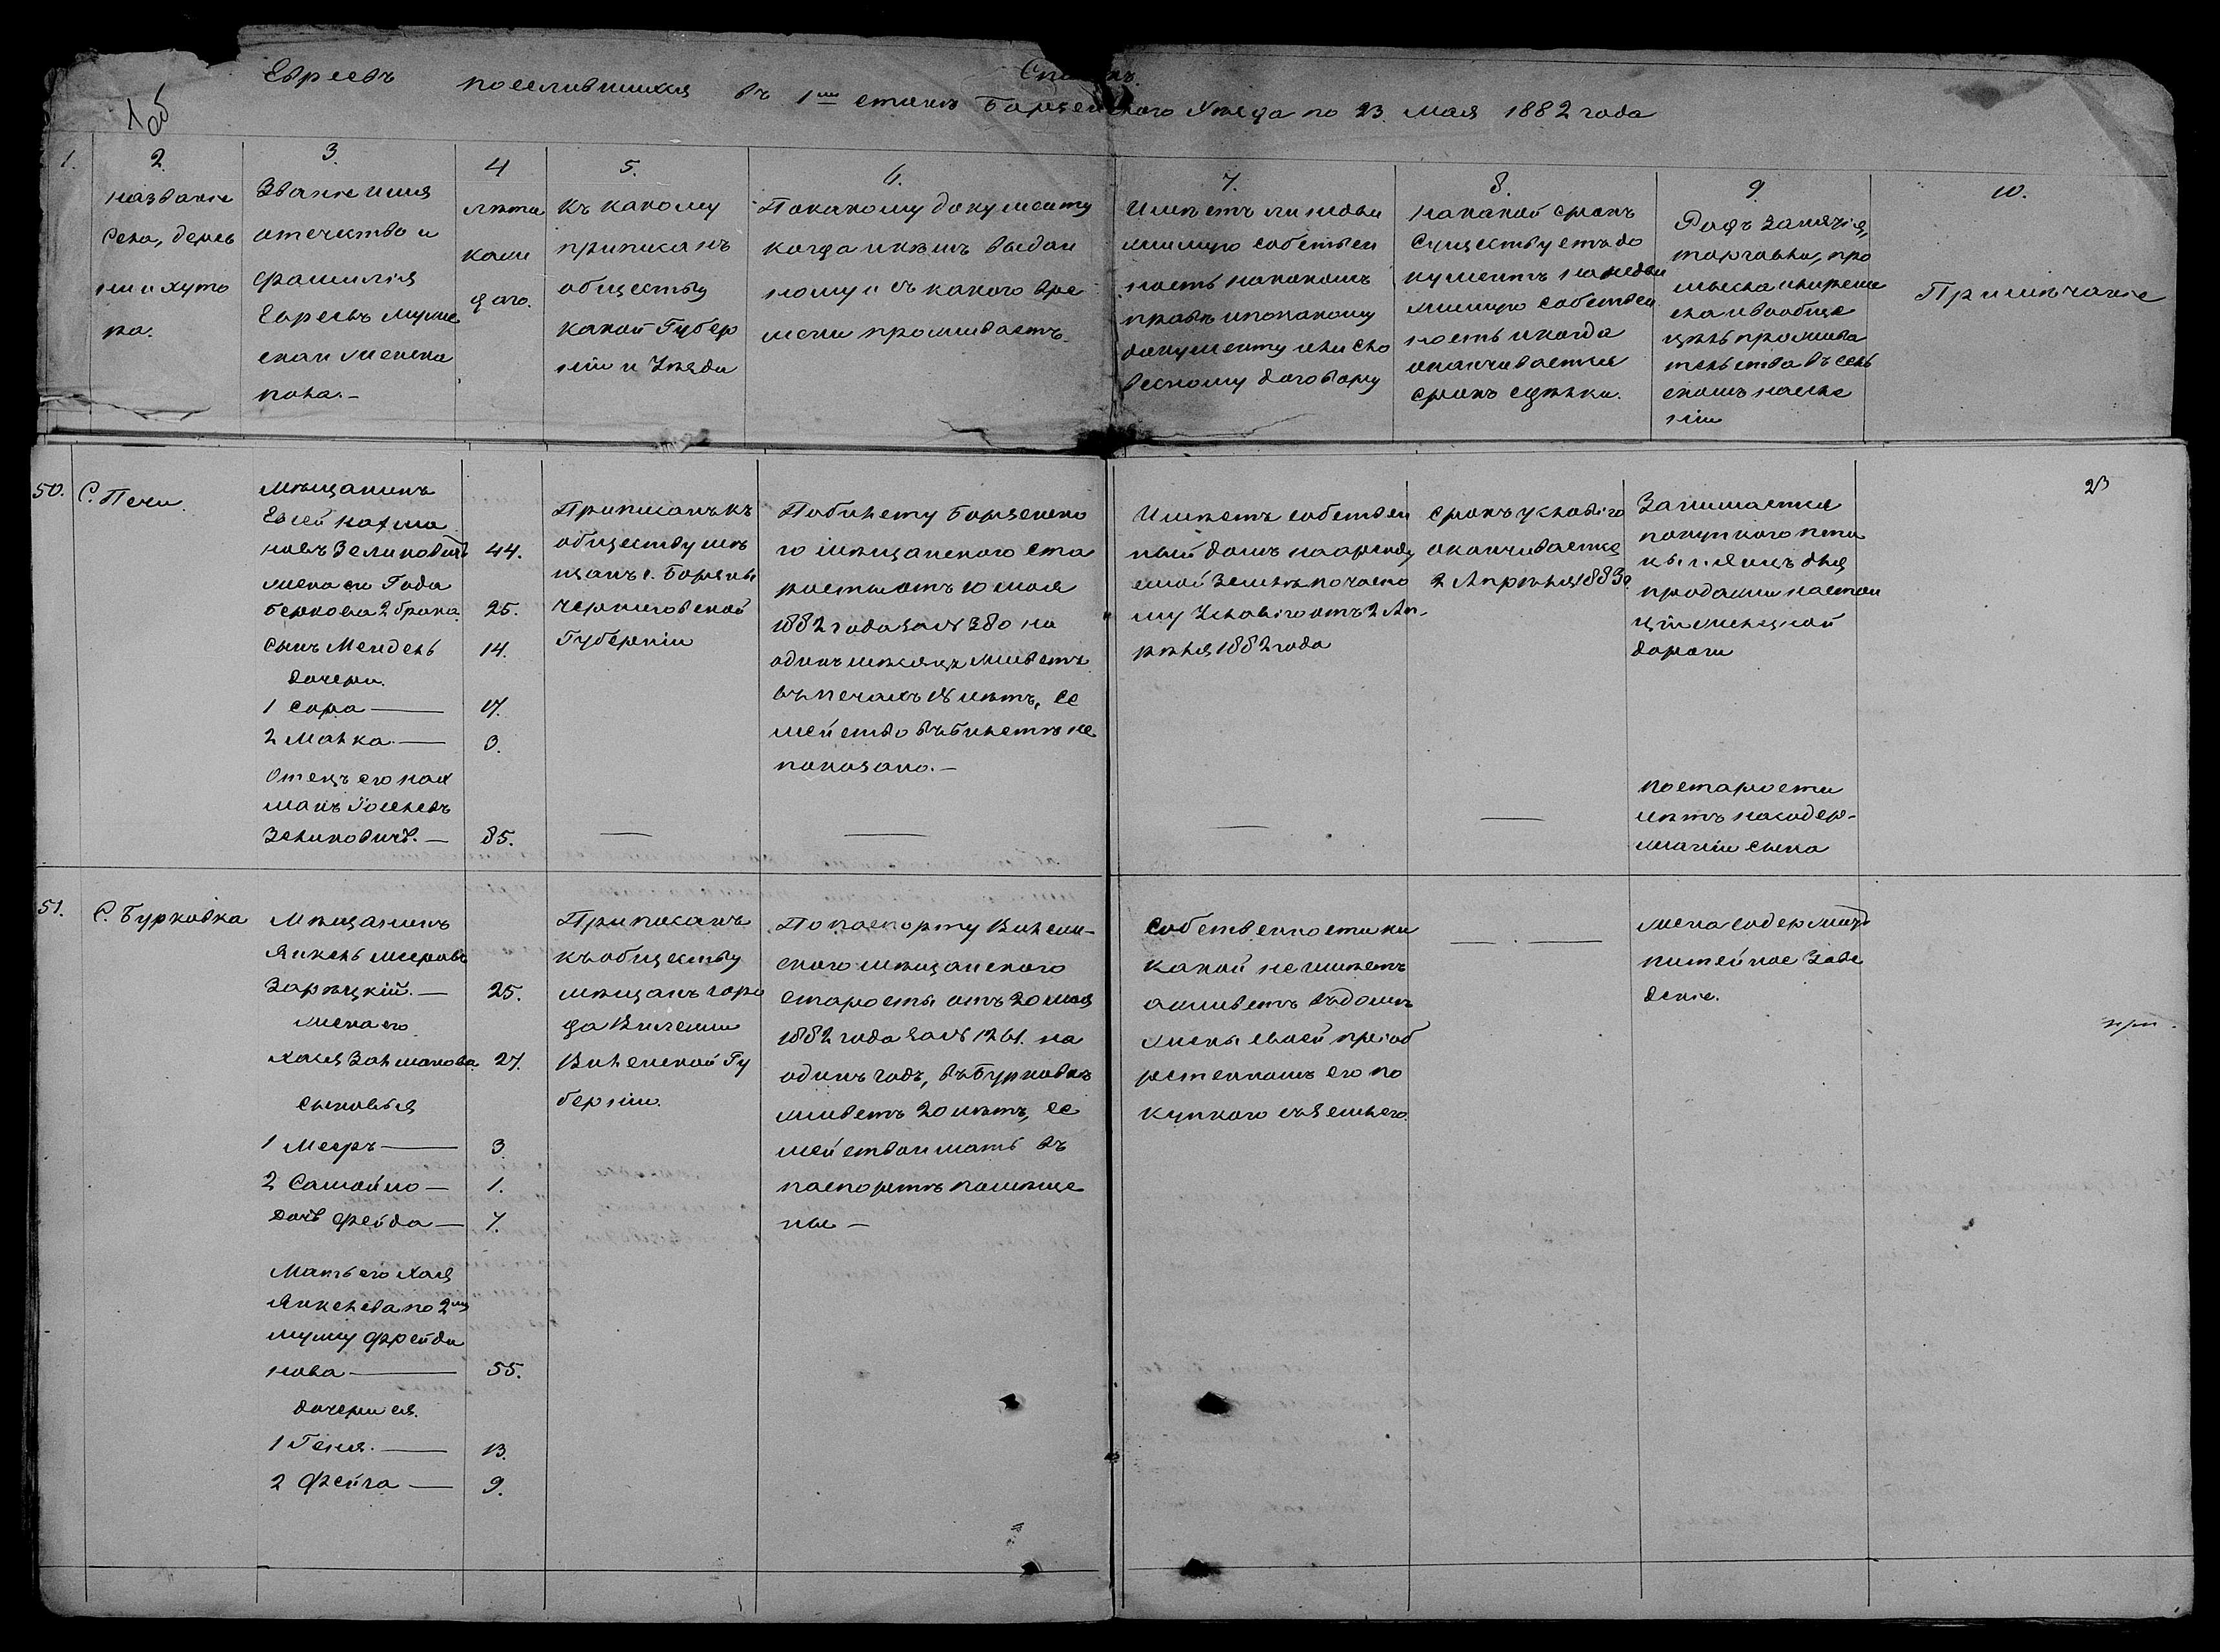 Списокъ
Евреевъ поселившихся въ 1мъ станѣ Борзенскаго Уѣзда по 23. мая 1882 года
1об
1.
2.
названіе
села, дерев
ни и хуто
ра.
3.
Званіе имя
отечество и
фамилія
Евреевъ муже
ска и женска
пола.-
4
лѣта
кажи
дого.
5.
къ какому
приписанъ
обществу
какой Губер
ніи и Уѣзда
6.
По какому документу
когда и кѣмъ выдан
ному и съ какого вре
мени проживаетъ.
7.
Имѣетъ ли недви
жимую собствен
ность на какомъ
правѣ и по какому
документу или сло
весному договору
8.
на какой срокъ
Существуетъ до
кументъ на недви
жимую собствен
ность и когда
оканчивается
срокъ сдѣлки.
9.
Родъ занятія,
торговли, про
мысла и ремес
ла и вообще
цѣль прожива
тельства въ сель
скомъ населе
ніи
10.
Примѣчаніе
23
50.
С. Печи.
Мѣщанинъ
Евсей Нахма
новъ Зеликовичъ
44.
жена его Года
Беркова 2 брака.
25.
сынъ Мендель
14.
дочери.
1 Сора —
17.
2 Малка —
Отецъ его Нах
манъ
Зеликовичъ. —
85.
Приписанъ къ
обществу мѣ
щанъ г. Борзны
Черниговской
Губерніи
По билету Борзенска
го мѣщанского ста
росты отъ 10 мая
1882 года за № 380 на
одинъ мѣсяцъ живетъ
въ Печахъ 18 лѣтъ, се
мейство въ билетѣ не
показано. —
Имѣетъ собствен
ный домъ на аренду
емой землѣ по частно
му Условію отъ 2 Ап-
рѣля 1882 года
срокъ условію
оканчивается
2 Апрѣля 1883 г.
Занимается
покупкою пти
цы и яицъ для
продажи на стан
ціи желѣзной
дороги
по старости
лѣтъ на содер-
жаніи сына
51.
С. Бурковка
Мѣщанинъ
Янкель Мееровъ
Зарѣцкій. —
25.
жена его
Хася Залманова
27.
сыновья
1 Мееръ —
3
2 Самойло —
1.
дочь Фейда —
7.
Мать его Хая
Янкелева по 2му
мужу Фрейди
нова —
55.
дочери ея.
1 Геня. —
13.
2 Фейга —
9.
Приписанъ
къ обществу
мѣщанъ горо
да Вилейки
Виленской Гу
берніи.
По паспорту Вилей-
ского мѣщанского
старосты отъ 20 мая
1882 года за № 1261. на
одинъ годъ, въ Бурковкѣ
живетъ 20 лѣтъ, се
мейство и мать въ
паспортѣ помѣще
ны —
Собственности ни
какой не имѣетъ
а живетъ въ домѣ
жены своей пріоб
рѣтенномъ ею по
купкою съ землею.
жена содержитъ
питейное заве
деніе.